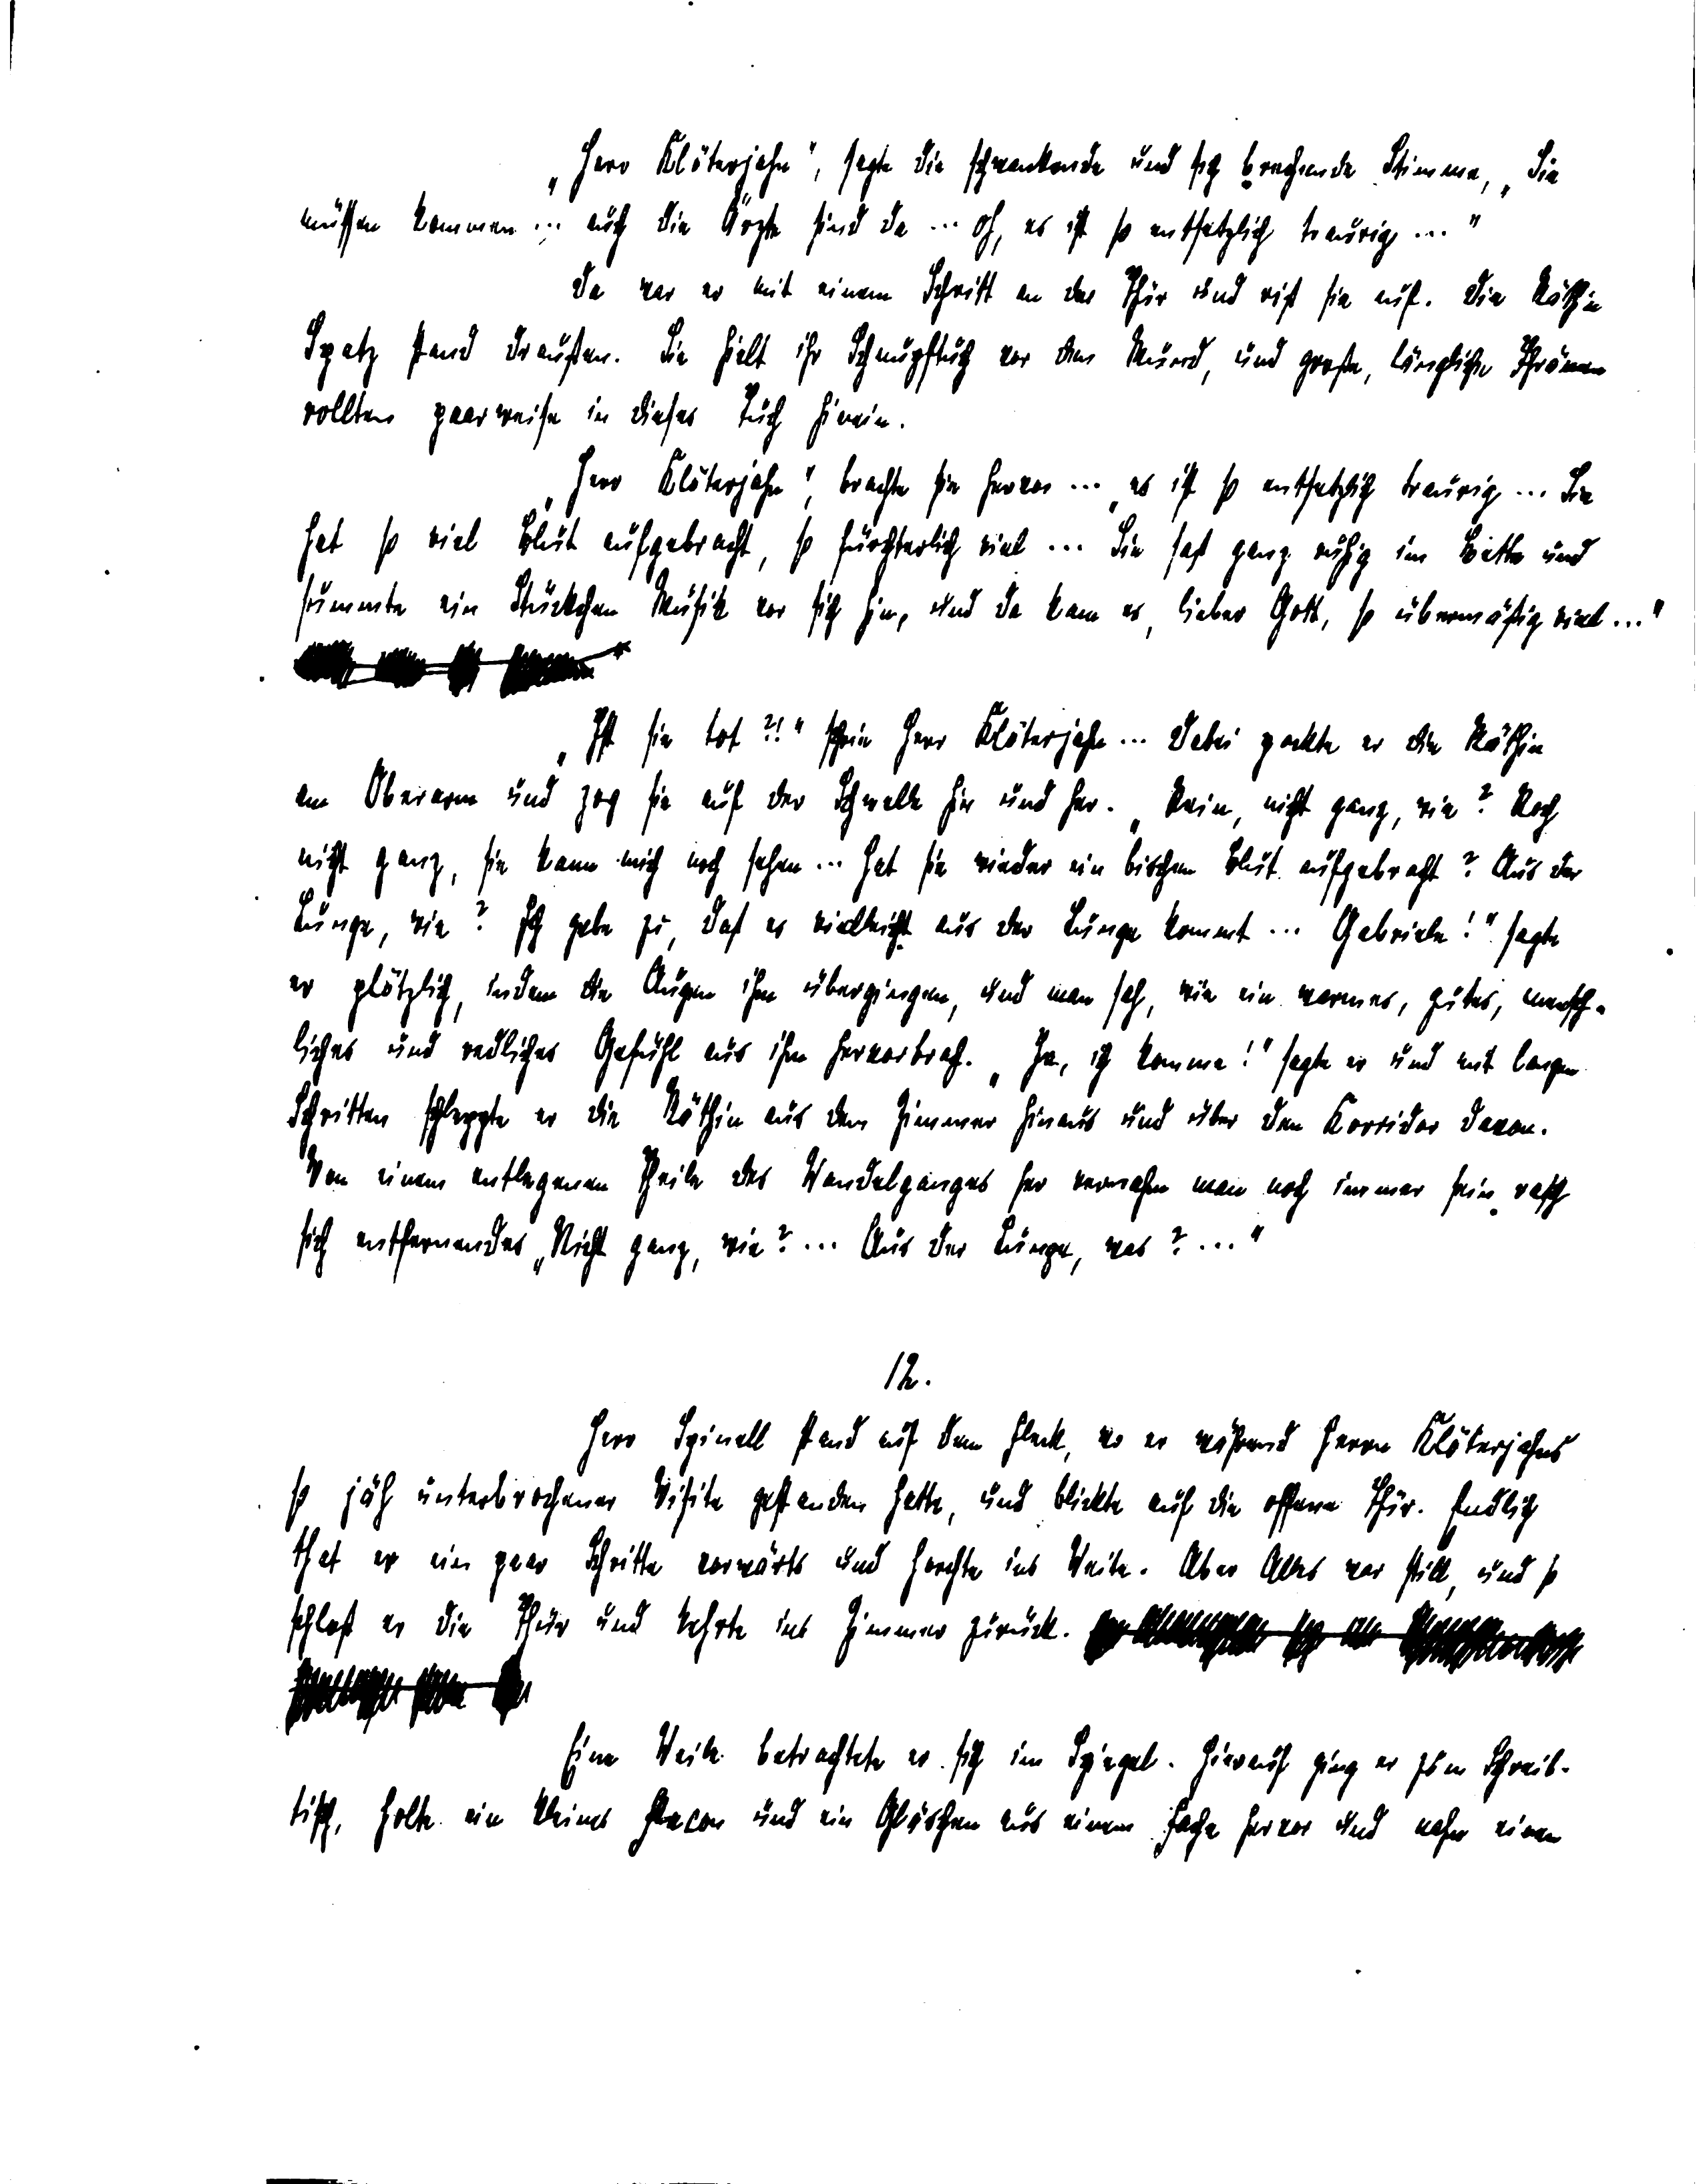 „Herr Klöterjahn", sagte die schwankende und sich brechende Stimme, „Sie
müssen kommen ... auch die Ärzte sind da ... oh, es ist so entsetzlich traurig ..."
Da war er mit einem Schritt an der Thür und riß sie auf. Die Räthin
Spatz stand draußen. Sie hielt ihr Schnupftuch vor den Mund, und große, längliche Thränen
rollten paarweise in dieses Tuch hinein.
„Herr Klöterjahn", brachte sie hervor ... „es ist so entsetzlich traurig ... Sie
hat so viel Blut aufgebracht, so fürchterlich viel ... Sie saß ganz ruhig im Bette und
summte ein Stückchen Musik vor sich hin, und da kam es, lieber Gott, so übermäßig viel ..."
„Ist sie tot?!" schrie Herr Klöterjahn ... Dabei packte er die Räthin
am Oberarm und zog sie auf der Schwelle hin und her. „Nein, nicht ganz, wie? Noch
nicht ganz, sie kann mich noch sehen ... Hat sie wieder ein bischen Blut aufgebracht? Aus der
Lunge, wie? Ich gebe zu, daß es vielleicht aus der Lunge kommt ... Gabriele!" sagte
er plötzlich, indem die Augen ihm übergingen, und man sah, wie ein warmes, gutes, mensch-
liches und redliches Gefühl aus ihm hervorbrach. „Ja, ich komme!" sagte er und mit langen
Schritten schleppte er die Räthin aus dem Zimmer hinaus und über den Korridor davon.
Von einem entlegenen Theile des Wandelganges her vernahm man noch immer sein rasch
sich entfernendes „Nicht ganz, wie? ... Aus der Lunge, was? ..."
12.
Herr Spinell stand auf dem Fleck, wo er während Herrn Klöterjahns
so jäh unterbrochener Visite gestanden hatte, und blickte auf die offene Thür. Endlich
that er ein paar Schritte vorwärts und horchte ins Weite. Aber Alles war still, und so
schloß er die Thür und kehrte ins Zimmer zurück.
Eine Weile betrachtete er sich im Spiegel. Hierauf ging er zum Schreib-
tisch, holte ein kleines Flacon und ein Gläschen aus einem Fache hervor und nahm einen